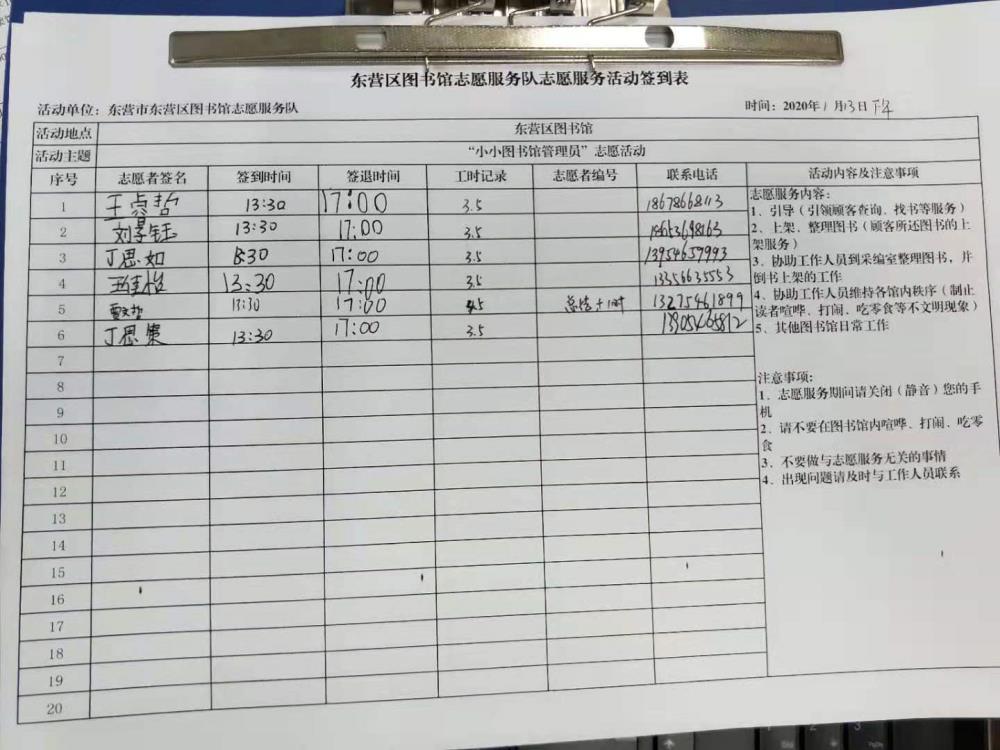 东营区图书馆志愿服务队志愿服务活动签到表
活动单位：东营市东营区图书馆志愿服务队 时间：2020年1月13日下午
活动地点 东营区图书馆
活动主题 “小小图书馆管理员”志愿活动
序号 志愿者签名 签到时间 签退时间 工时记录 志愿者编号 联系电话 活动内容及注意事项
1 13:30 17:00 3.5 18678668113
2 13:30 17:00 3.5
3 丁思如 13:30 17:00 3.5 13954657993
4 13:30 17:00 3.5 13356635553
5 13:30 17:00 4.5 总结+1时 13275461899
6 丁思集 13:30 17:00 3.5 13905465812
7
8
9
10
11
12
13
14
15
16
17
18
19
20
志愿服务内容：
1、引导（引领顾客查询、找书等服务）
2、上架、整理图书（顾客所还图书的上
架服务）
3、协助工作人员到采编室整理图书，并
倒书上架的工作
4、协助工作人员维持各馆内秩序（制止
读者喧哗、打闹、吃零食等不文明现象）
5、其他图书馆日常工作
注意事项：
1、志愿服务期间请关闭（静音）您的手
机
2、请不要在图书馆内喧哗、打闹、吃零
食
3、不要做与志愿服务无关的事情
4、出现问题请及时与工作人员联系